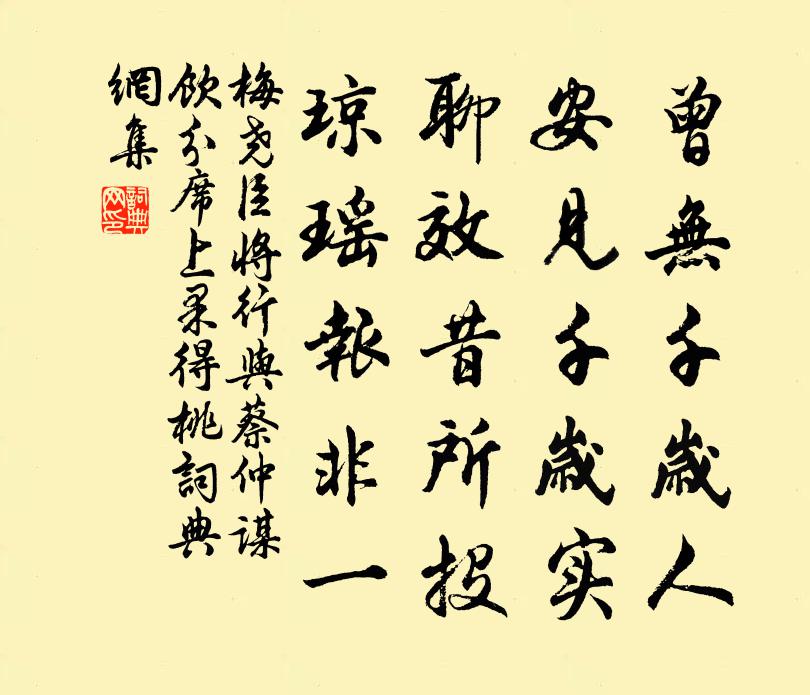 曾無千歲人
安見千歲实
聊效昔所投
琼瑶報非一
梅尧臣將行與蔡仲謀
飲分席上果得桃詞典
網集
詞典
网印